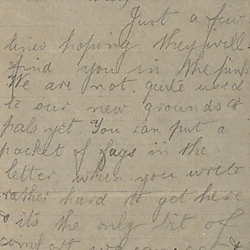 Just a few
lines hoping they will
find you in the pink
We are not quite used
to our new grounds &
pals yet You can put a
packet of fags in the
letter when you write
rather hard to get here
& its the only bit of
comfort we